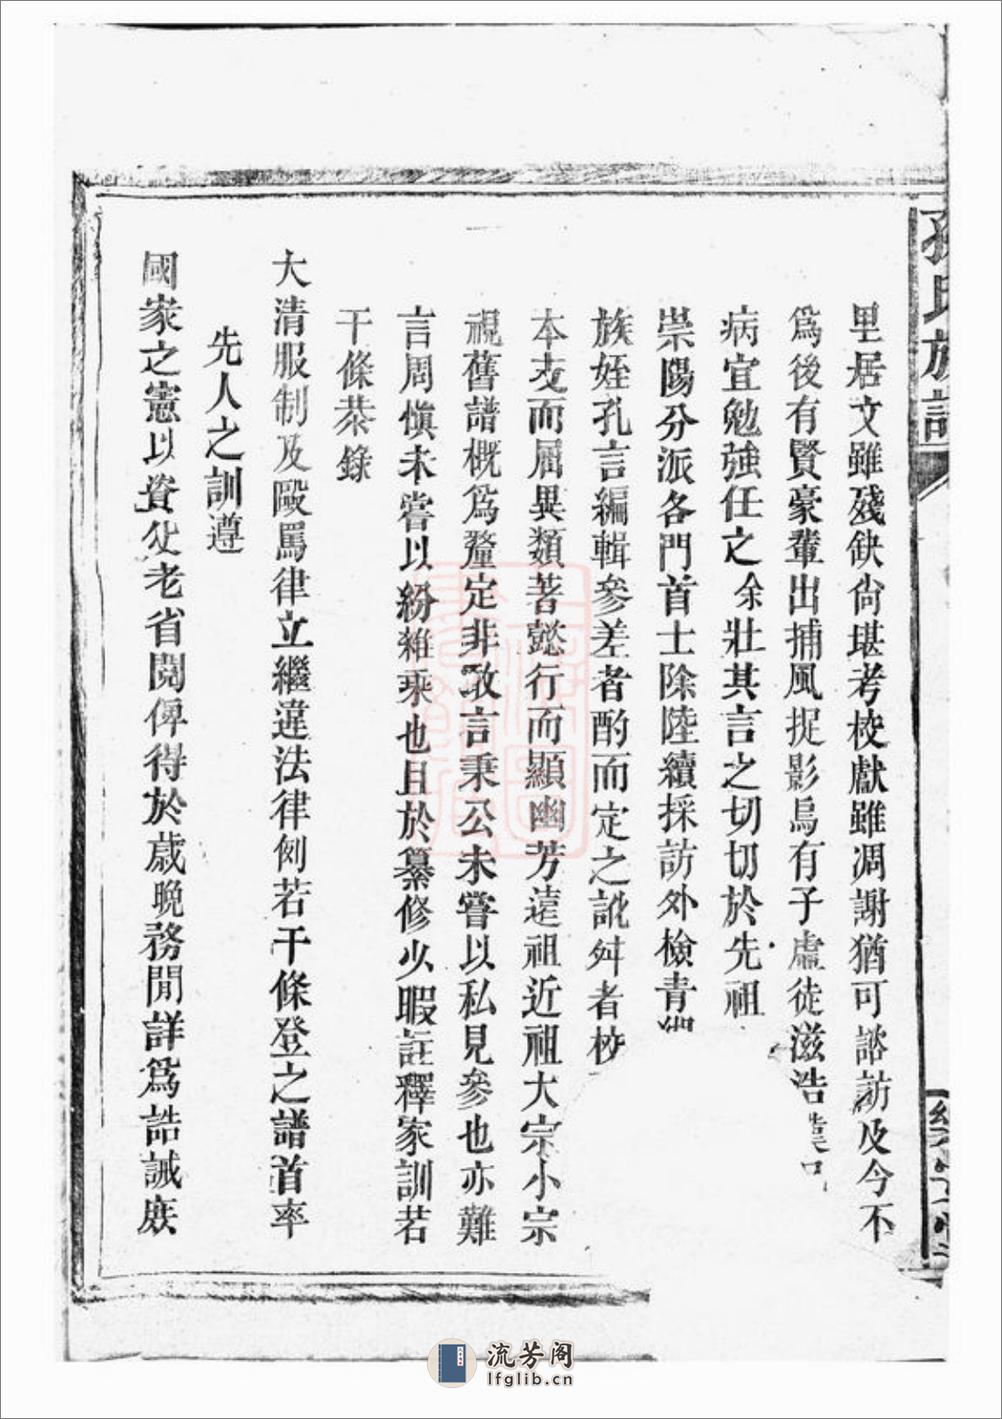 孫氏族譜
里居文雖殘缺尙堪考校獻雖凋謝猶可諮訪及今不
爲後有賢豪輩出捕風捉影烏有子虛徒滋浩
病宜勉強任之余壯其言之切切於先祖
崇陽分派各門首士除陸續採訪外檢靑
族姪孔言編輯參差者酌而定之訛舛者校
本支而屆異類著懿行而顯幽芳遠祖近祖大宗小宗
視舊譜槪爲釐定非敢言秉公未嘗以私見參也亦難
言周愼未嘗以紛雜乘也且於纂修少暇註釋家訓若
干條恭錄
大清服制及毆罵律立繼違法律例若干條登之譜首率
先人之訓遵
國家之憲以資父老省閱俾得於歲晚務閒詳爲誥誡庶
流芳阁
lfglib.cn